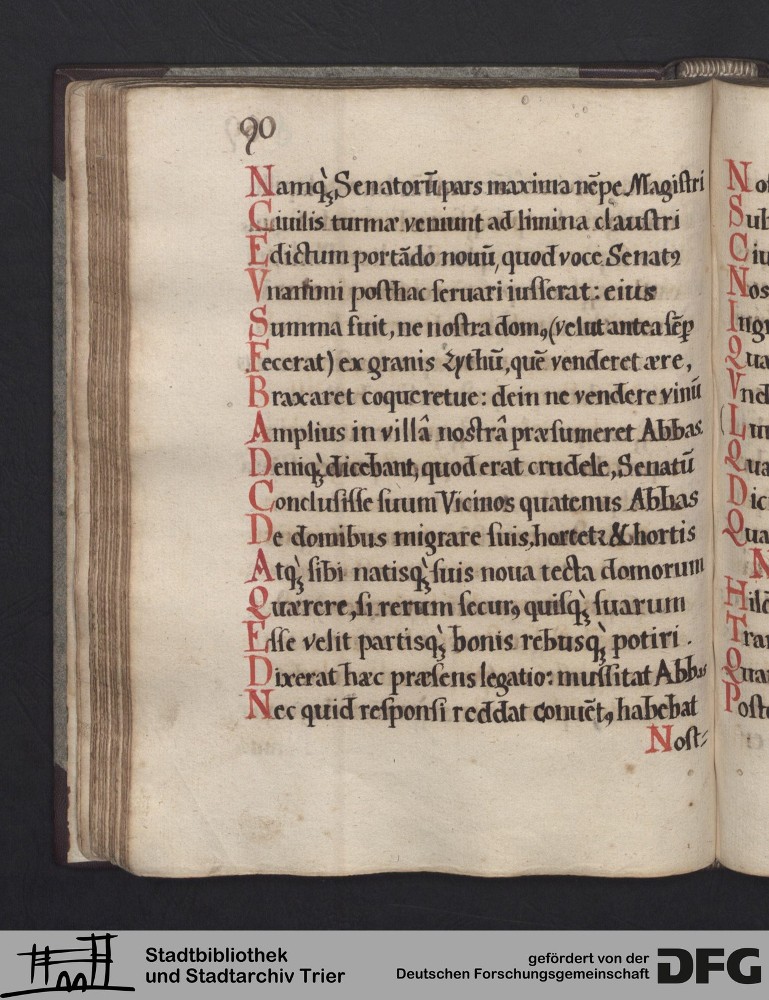 90
Namq̀ꝫ Senatorū pars maxima nēpe Magistri
Ciuilis turmæ veniunt ad limina claustri
Edictum portādo nouū, quod voce Senatꝰ
Vnanimi posthac seruari iusserat: eius
Summa fuit, ne nostra domꝰ, (velut antea sēꝑ
Fecerat) ex granis Zythū, quē venderet ære,
Braxaret coqueretue: dein ne vendere vinū
Amplius in villâ nostrâ præsumeret Abbas.
Deniq̀ꝫ dicebant, quod erat crudele, Senatū
Conclusisse suum Vicinos quatenus Abbas
De domibus migrare suis, hortetꝛ & hortis
Atq̀ꝫ sibi natisq̀ꝫ suis noua tecta domorum
Quærere, si rerum securꝰ quisq̀ꝫ suarum
Esse velit partisq̀ꝫ bonis rebusq̀ꝫ potiri.
Dixerat hæc præsens legatio: mussitat Abbas
Nec quid responsi reddat conuētꝰ, habebat
Nost⸗
No
Sub
Ciu
Nos
Ingr
Qua
Vnd
Qua
Dic
Qua
N
Tra
Qua
Post
Stadtbibliothek
und Stadtarchiv Trier
gefördert von der
Deutschen Forschungsgemeinschaft
DFG